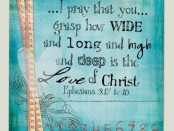 ...I pray that you...
grasp how WIDE
and long and high
and deep is the
Love of Christ
Ephesians 3:17 & 18